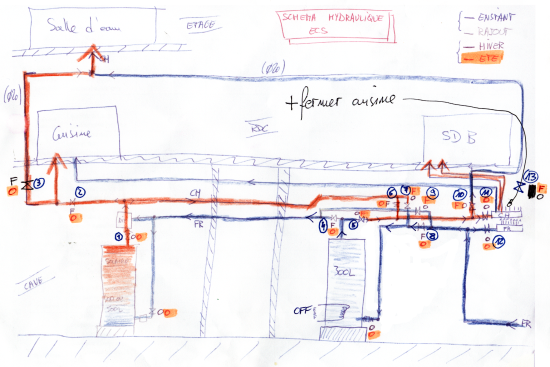 Salle d'eau
ETAGE
SCHEMA HYDRAULIQUE
ECS
EXISTANT
RAJOUT
HIVER
ETE
CH
+ fermer cuisine
Cuisine
RDC
SDB
F
O
3
2
CH
6
7
F
O
9
10
11
13
F
O
FR
4
5
F
8
CH
FR
12
1
O
300L
CAVE
OFF
O
FR